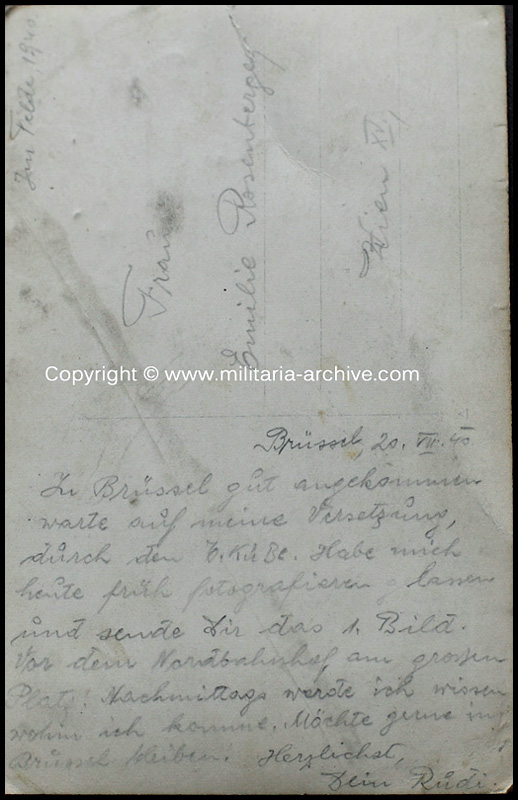 Im Felde, 1940
Frau
Emilie Rosenberger
Wien XV,
Copyright © www.militaria-archive.com
Brüssel, 20. VII. 40
In Brüssel gut angekommen
warte auf meine Versetzung,
durch den Habe mich
heute früh fotografieren lassen
und sende Dir das 1. Bild.
Vor dem Nordbahnhof am großen
Platz! Nachmittags werde ich wissen
wohin ich komme. Möchte gerne in
Brüssel bleiben! Herzlichst,
Dein Rudi.